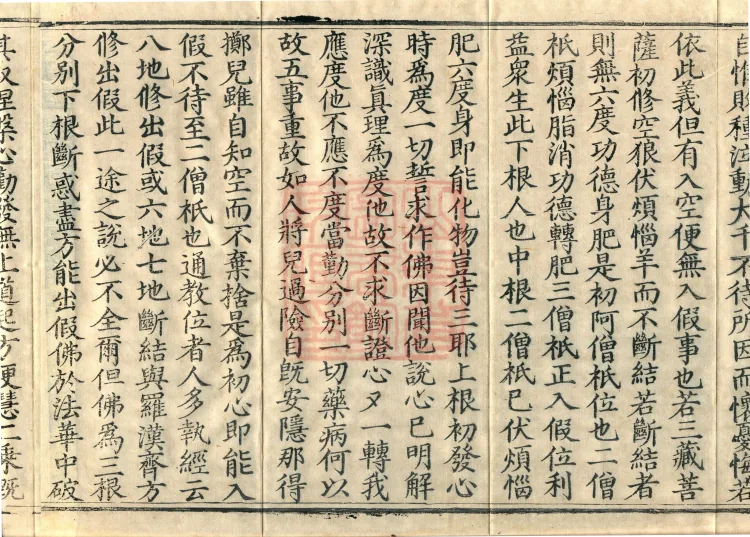 自悔則積泣動大千不待所因而懷憂悔若
依此義但有入空便無入假事也若三藏菩
薩初修空狼伏煩惱羊而不斷結若斷結者
則無六度功德身肥是初阿僧祇位也二僧
祇煩惱脂消功德轉肥三僧祇正入假位利
益衆生此下根人也中根二僧祇已伏煩惱
肥六度身即能化物豈待三耶上根初發心
時爲度一切誓求作佛因聞他說心已明解
深識眞理爲度他故不求斷證心又一轉我
應度他不應不度當勤分别一切藥病何以
故五事重故如人將兒過險自既安隱那得
擲兒雖自知空而不棄捨是爲初心即能入
假不待至二僧祇也通教位者人多執經云
八地修出假或六地七地斷結與羅漢齊方
修出假此一途之說必不全爾但佛爲三根
分别下根斷惑盡方能出假佛於法華中破
其取涅槃心勸發無上道起方便慧二乘既